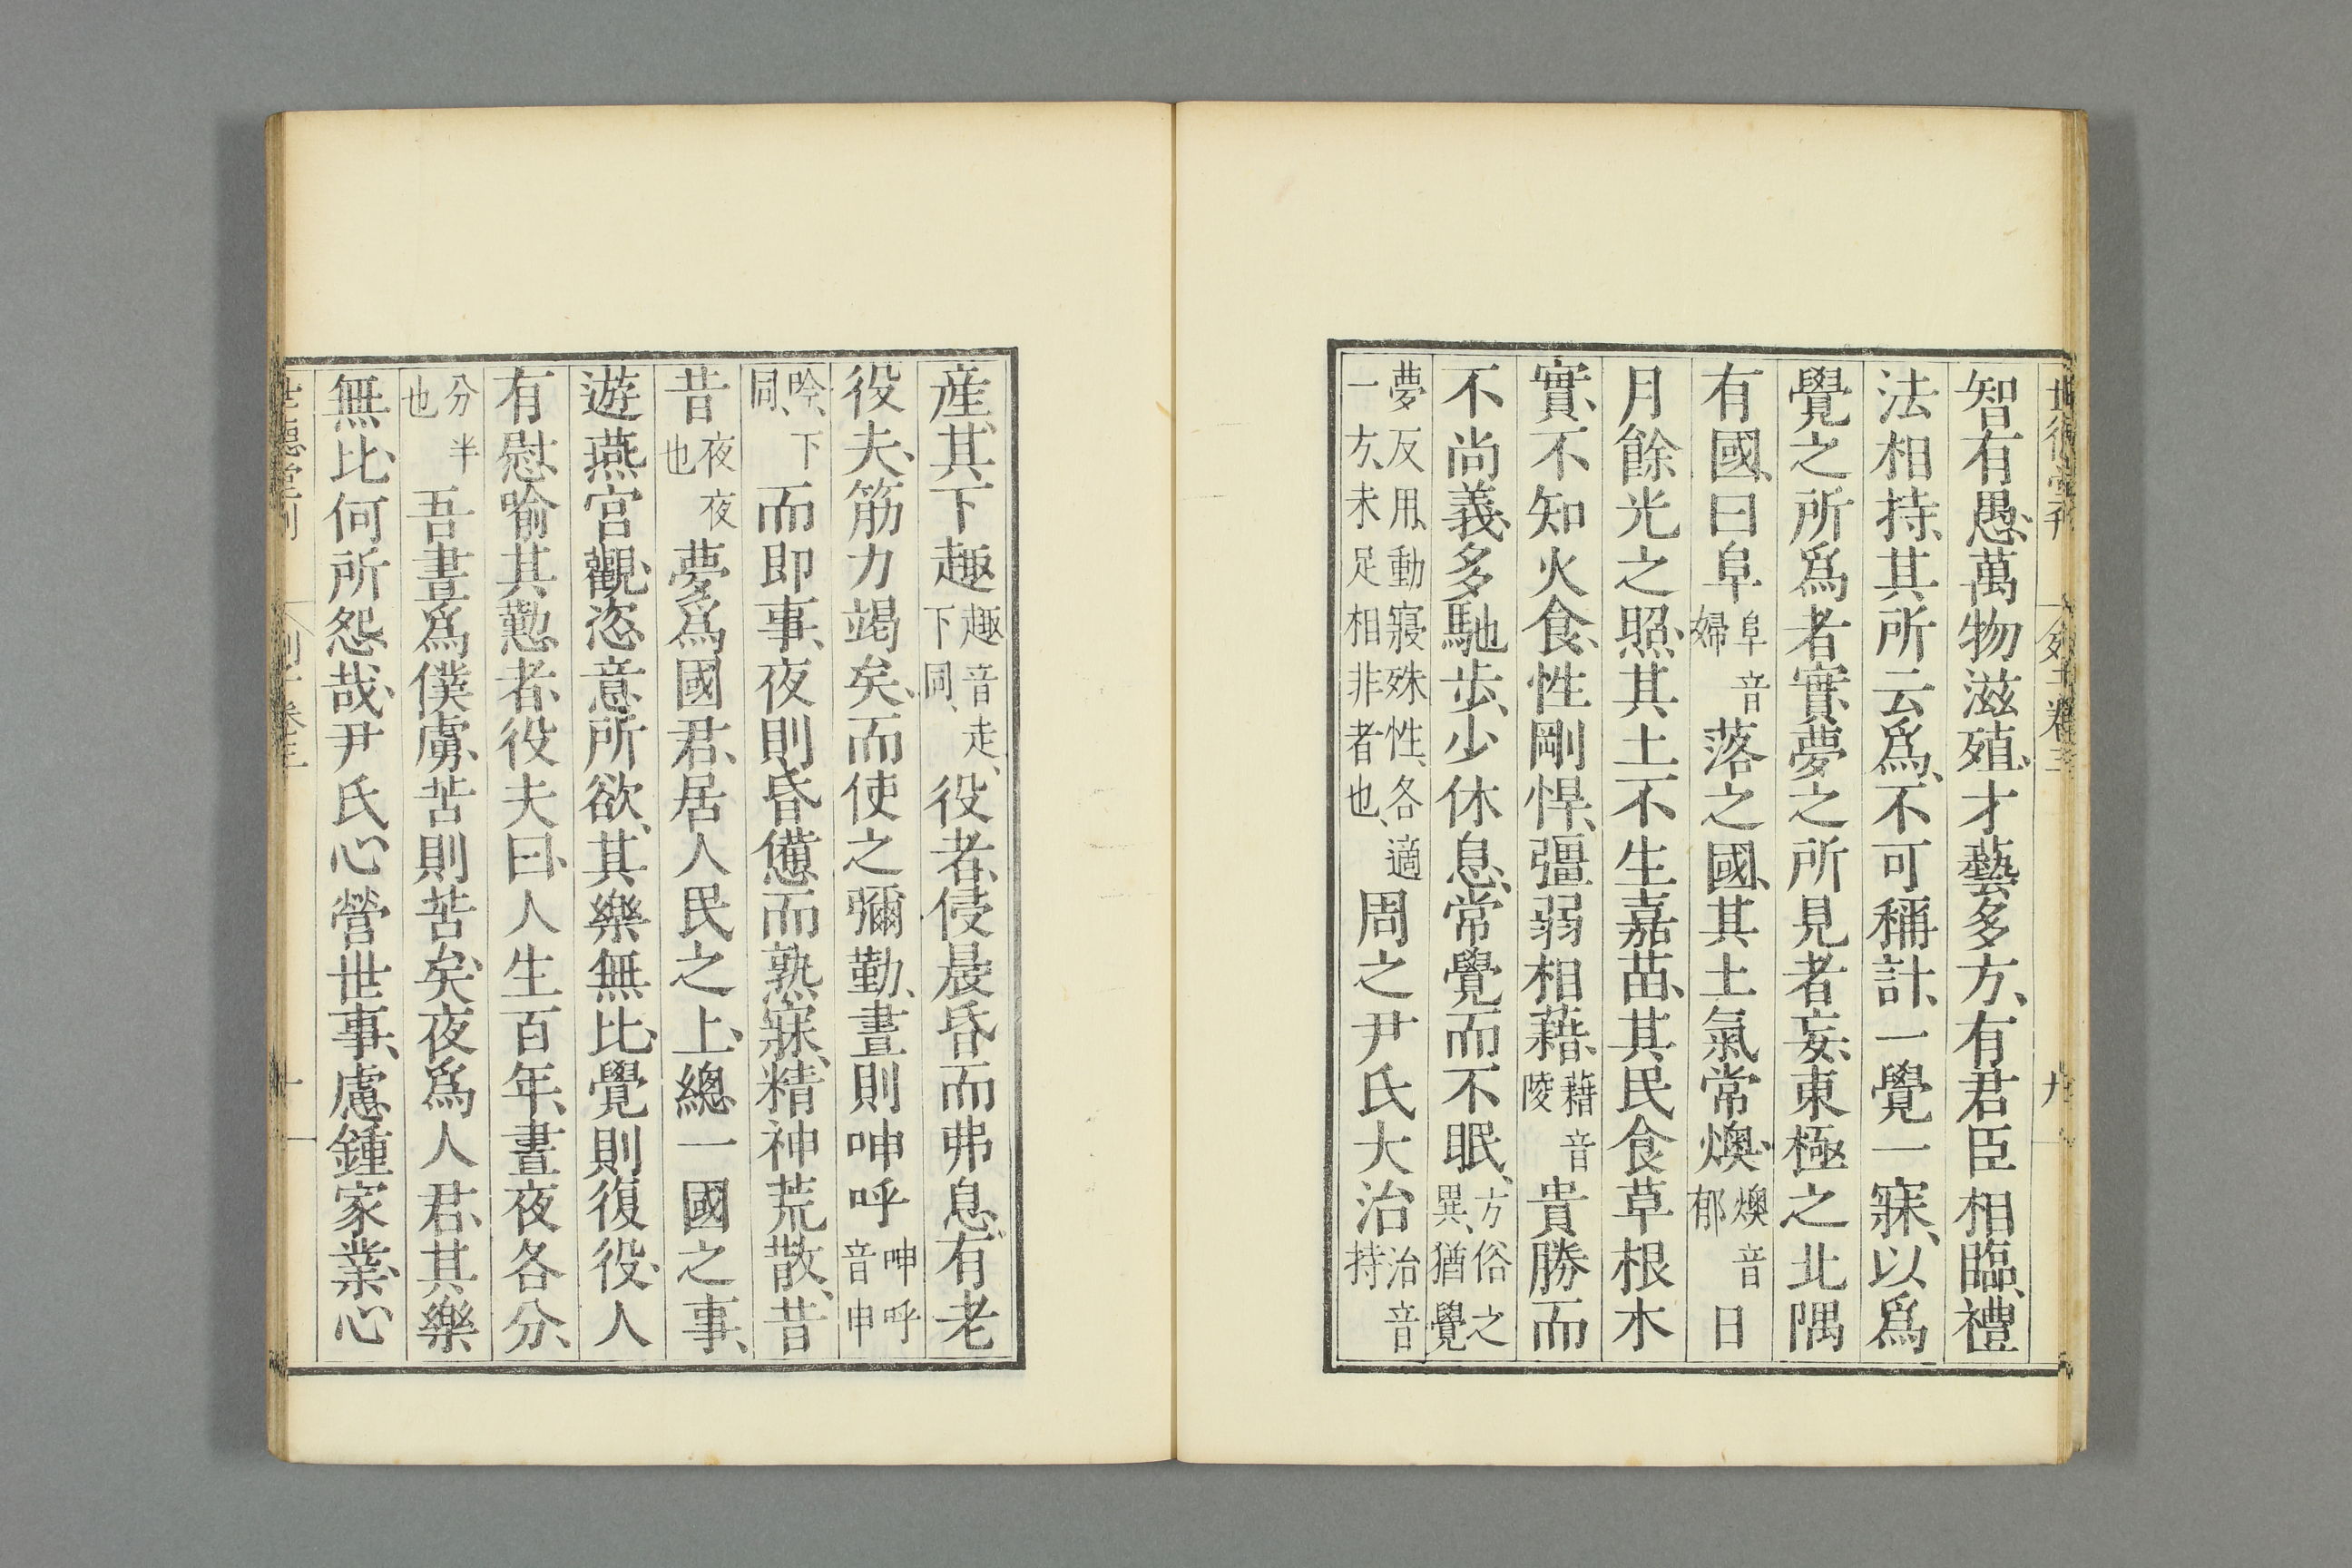 世德堂刊 列子卷三 九
智有愚、萬物滋殖、才藝多方、有君臣相臨、禮
法相持、其所云爲、不可稱計、一覺一寐、以爲
覺之所爲者實、夢之所見者妄、東極之北隅
有國、曰阜阜音婦落之國、其土氣常燠、燠音郁日
月餘光之照、其土不生嘉苗、其民食草根木
實、不知火食、性剛悍、彊弱相藉、藉音陵貴勝而
不尚義、多馳步、少休息、常覺而不眠、方俗之異、猶覺
夢反用、動寢殊性、各適一方、未足相非者也、周之尹氏大治治音持
産、其下趣趣音走、下同、役者、侵晨昏而弗息、有老
役夫、筋力竭矣、而使之彌勤、晝則呻呼呻呼音申
吟、下同、而即事、夜則昏憊而熟寐、精神荒散、昔
昔夜夜也夢爲國君、居人民之上、總一國之事、
遊燕宮觀、恣意所欲、其樂無比、覺則復役、人
有慰喻其懃者、役夫曰、人生百年、晝夜各分、
分半也吾晝爲僕虜、苦則苦矣、夜爲人君、其樂
無比、何所怨哉、尹氏心營世事、慮鍾家業、心
世德堂刊 列子卷三 十